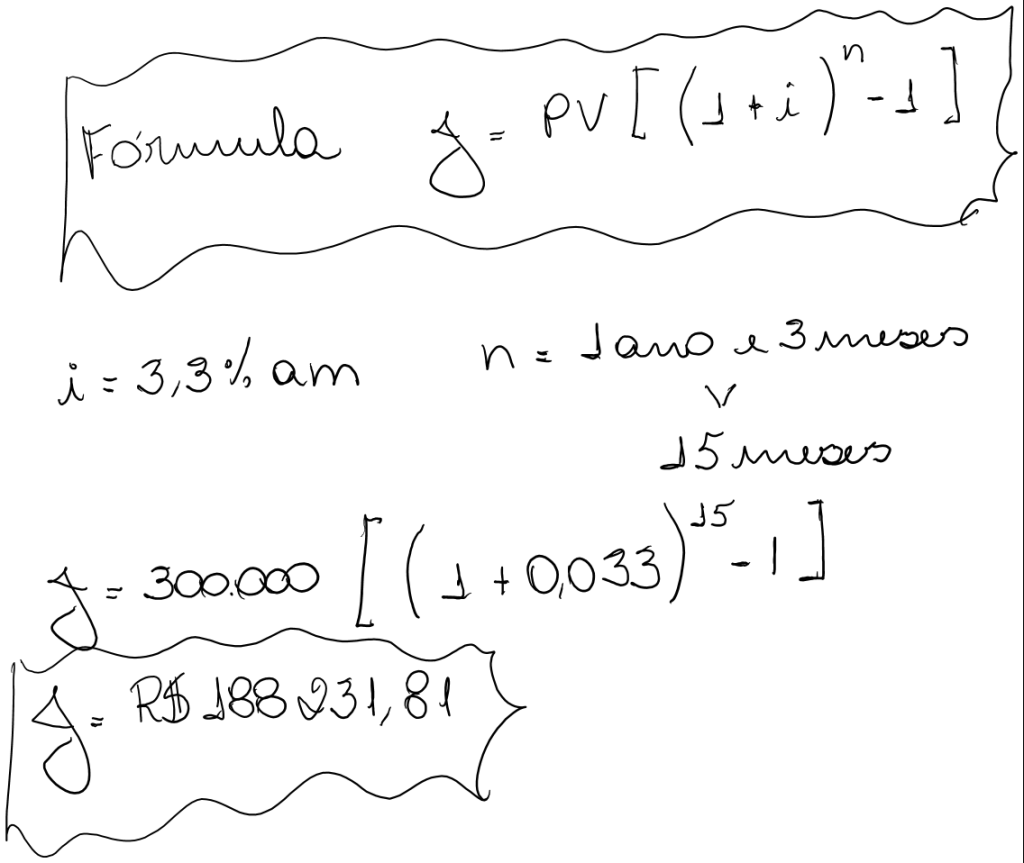 Fórmula J = PV [ (1 + i)ⁿ - 1 ]
i = 3,3% am n = 1 ano e 3 meses
15 meses
J = 300.000 [ (1 + 0,033)¹⁵ - 1 ]
J = R$ 188 231,81